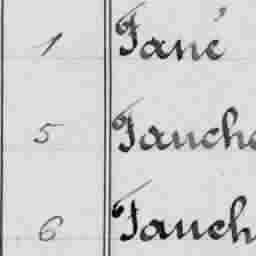 1 Fané
5 Fauche
6 Fauch